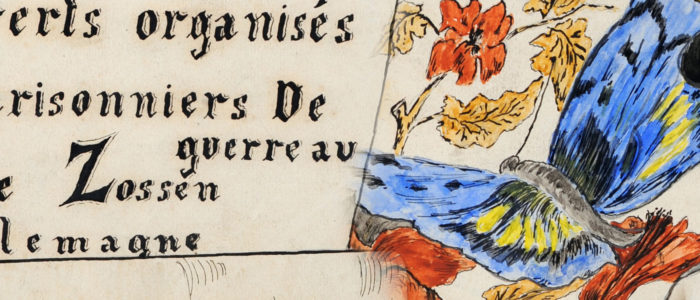 erts organisés
risonniers De
guerre au
e Zossen
lemagne